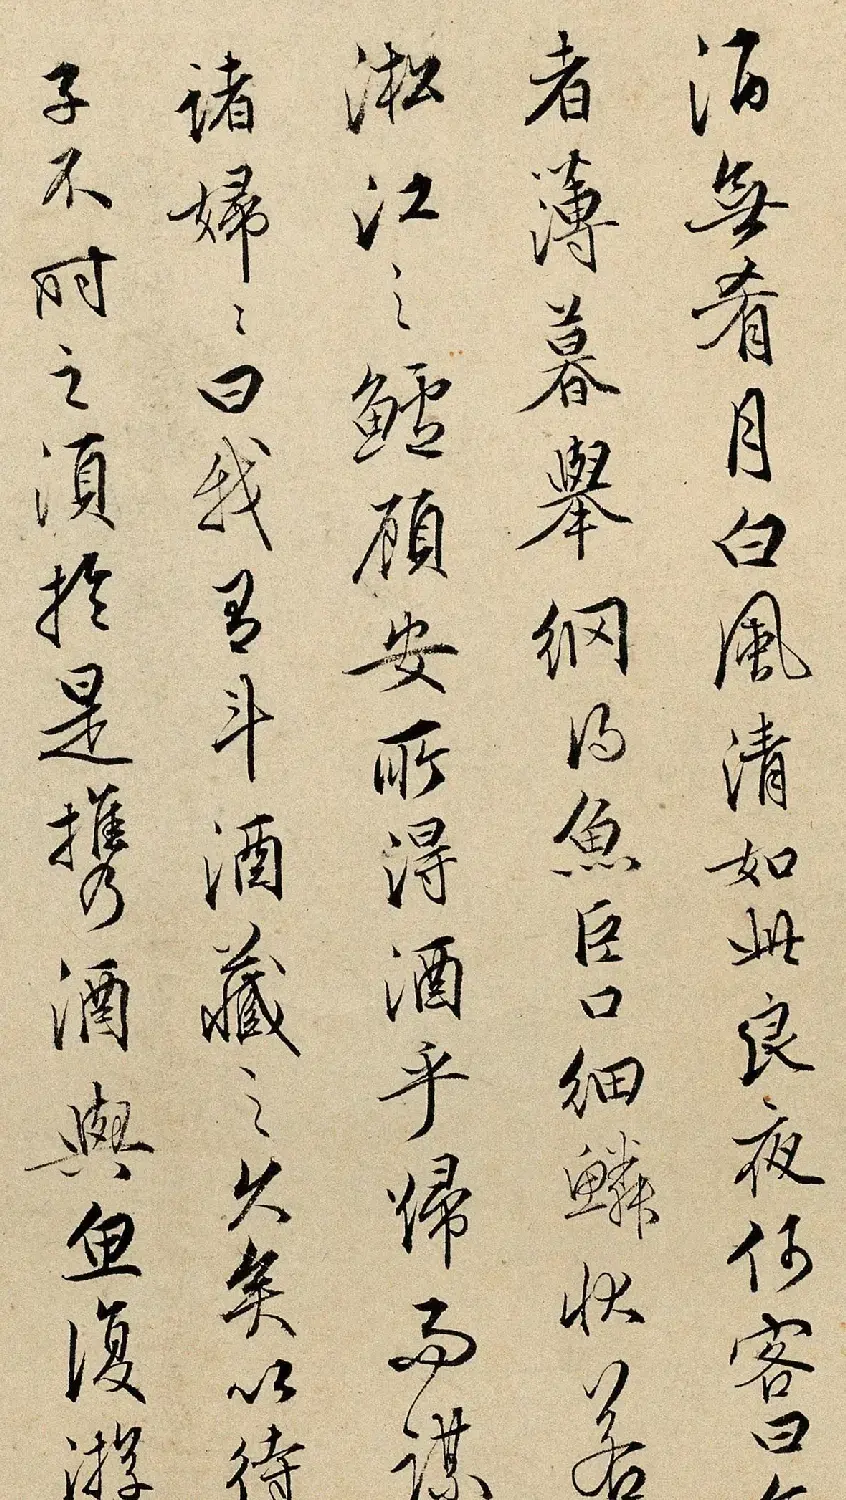 酒無肴月白風清如此良夜何客曰今
者薄暮舉網得魚巨口細鱗狀若
淞江之鱸顧安所得酒乎歸而謀
諸婦〻曰我有斗酒藏之久矣以待
子不時之須於是攜酒與魚復游